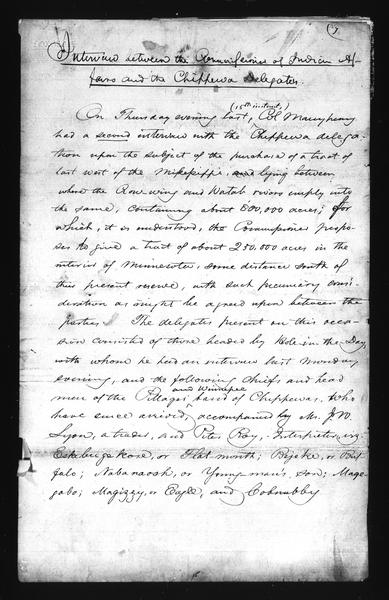 Interview between the Commissioner of Indian Af-
fairs and the Chippewa Delegates.
(15th instant,)
On Thursday evening last, Col Manypenny
had a second interview with the Chippewa delega-
tion upon the subject of the purchase of a tract of
land west of the Mississippi, and lying between
where the Row-wing and Watab rivers empty into
the same, containing about 500,000 acres; for
which, it is understood, the Commissioner propo-
ses to give a tract of about 250,000 acres in the
interior of Minnesota, some distance south of
this present reserve, with such pecuniary consi-
deration as might be agreed upon between the
parties. The delegates present on this occa-
sion consisted of those headed by Hole-in-the Day,
with whom he held an interview last Monday
evening, and the following chiefs and head
and Winnipec
men of the Pillager, band of Chippewas, who
have since arrived, accompanied by Mr. J W
Lyon, a trader, and Peter Roy, Interpreter, viz
or Flat mouth; Bejeke, or Buf-
falo; Nabanaosh, or Young man's Son; Mage-
gabo; Magizzy, or Eagle, and Cobnubby